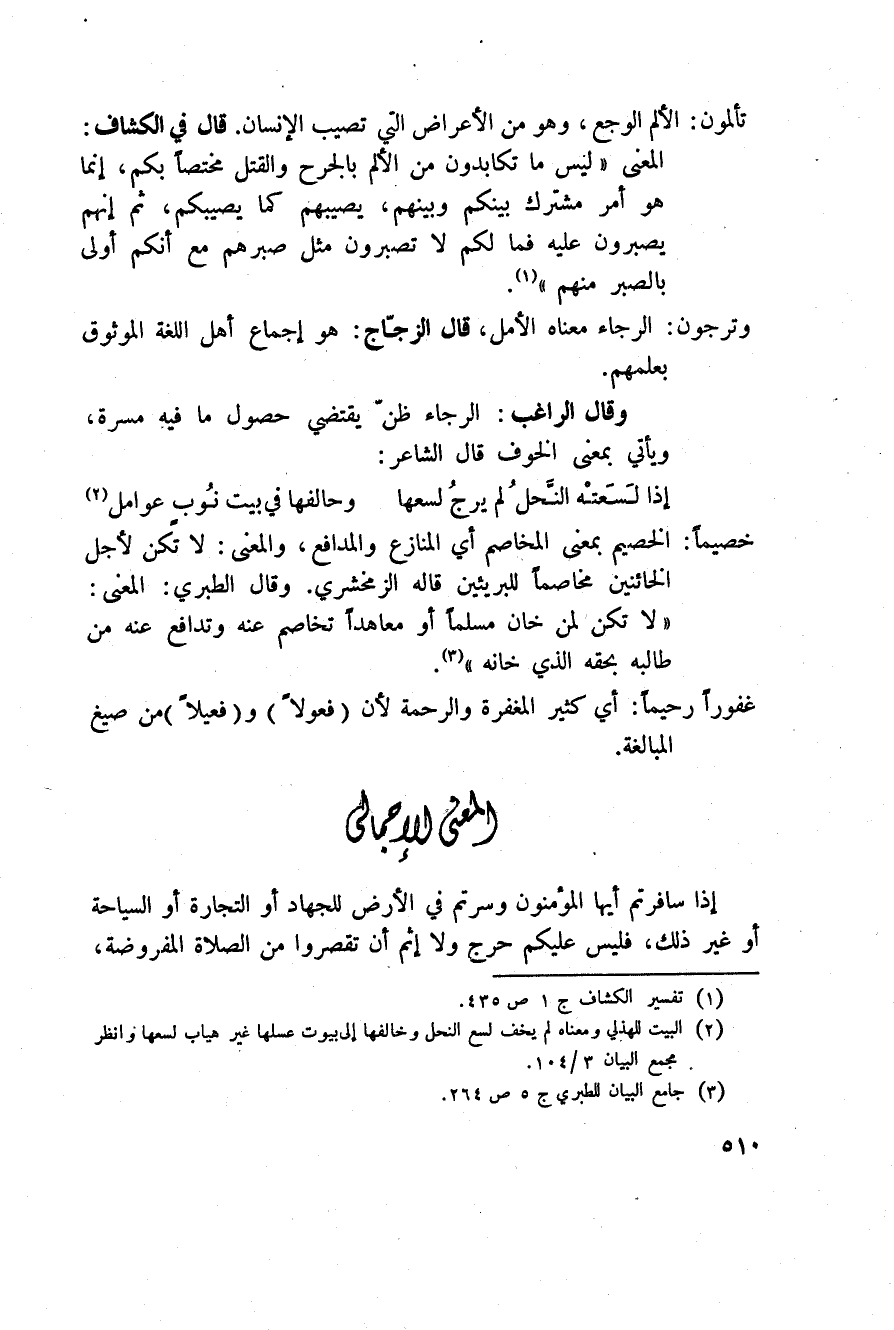 تألمون: الألم الوجع، وهو من الأعراض التي تصيب الإنسان. قال في الكشاف:
المعنى «ليس ما تكابدون من الألم بالجرح والقتل مختصاً بكم، إنما
هو أمر مشترك بينكم وبينهم، يصيبهم كما يصيبكم، ثم إنهم
يصبرون عليه فما لكم لا تصبرون مثل صبرهم مع أنكم أولى
بالصبر منهم»(١).
وترجون: الرجاء معناه الأمل، قال الزجّاج: هو إجماع أهل اللغة الموثوق
بعلمهم.
وقال الراغب: الرجاء ظنّ يقتضي حصول ما فيه مسرة،
ويأتي بمعنى الخوف قال الشاعر:
إذا لَسَعَتْه النَّحلُ لم يرجُ لسعها وحالفها في بيت نُوبٍ عوامل(٢)
خصيماً: الخصيم بمعنى المخاصم أي المنازع والمدافع، والمعنى: لا تكن لأجل
الخائنين مخاصماً للبريئين قاله الزمخشري. وقال الطبري: المعنى:
«لا تكن لمن خان مسلماً أو معاهداً تخاصم عنه وتدافع عنه من
طالبه بحقه الذي خانه»(٣).
غفوراً رحيماً: أي كثير المغفرة والرحمة لأن (فعولاً) و(فعيلاً) من صيغ
المبالغة.
المعنى الإجمالي
إذا سافرتم أيها المؤمنون وسرتم في الأرض للجهاد أو التجارة أو السياحة
أو غير ذلك، فليس عليكم حرج ولا إثم أن تقصروا من الصلاة المفروضة،
(١) تفسير الكشاف ج ١ ص ٤٣٥.
(٢) البيت للهذلي ومعناه لم يخف لسع النحل وخالفها إلى بيوت عسلها غير هياب لسعها وانظر
مجمع البيان ٣/١٠٤.
(٣) جامع البيان للطبري ج ٥ ص ٢٦٤.
٥١٠